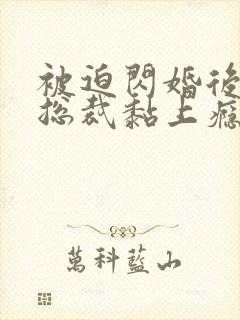 被迫閃婚後
総裁黏上癮
萬科藍山